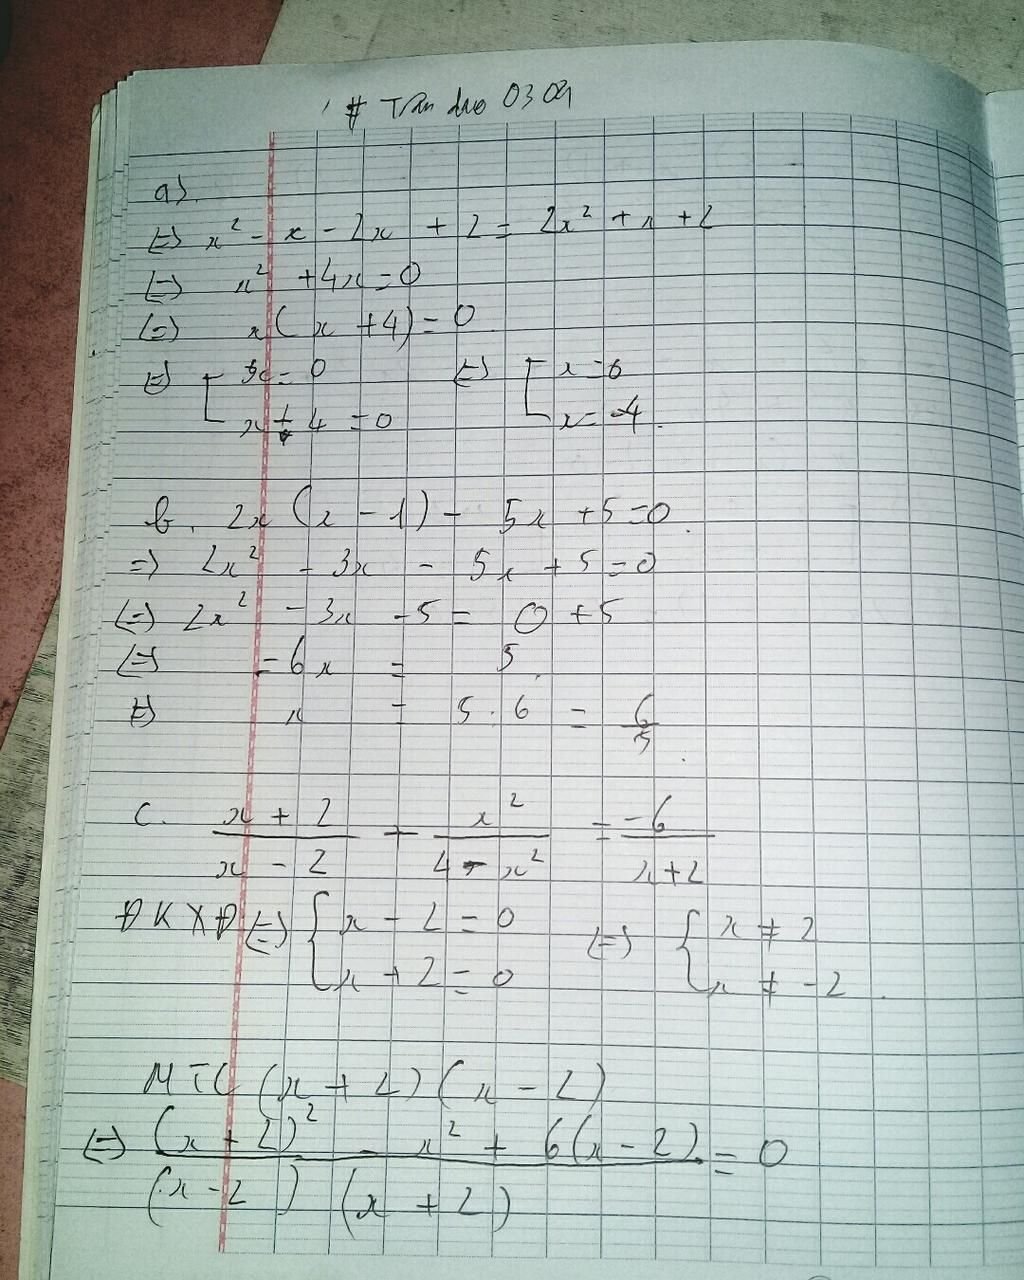 # Tran duo 0309
a).
(=) x² - x - 2x + 2 = 2x² + x + 2
(=) x² + 4x = 0
(=) x(x + 4) = 0
(=) [ x = 0 (=) [ x = 0
x + 4 = 0 x = -4.
b. 2x (x - 1) - 5x + 5 = 0.
=) 2x² - 3x - 5x + 5 = 0
(=) 2x² - 3x - 5 = 0 + 5
(=) - 6x = 5.
(=) x = 5 . 6 = 6/5.
c. (x + 2)/(x - 2) + x²/(4 - x²) = -6/(x + 2)
ĐKXĐ (=) { x - 2 = 0 (=) { x ≠ 2
x + 2 = 0 x ≠ -2.
MTC (x + 2) (x - 2)
(=) (x + 2)² - x² + 6(x - 2) = 0
(x - 2) (x + 2)